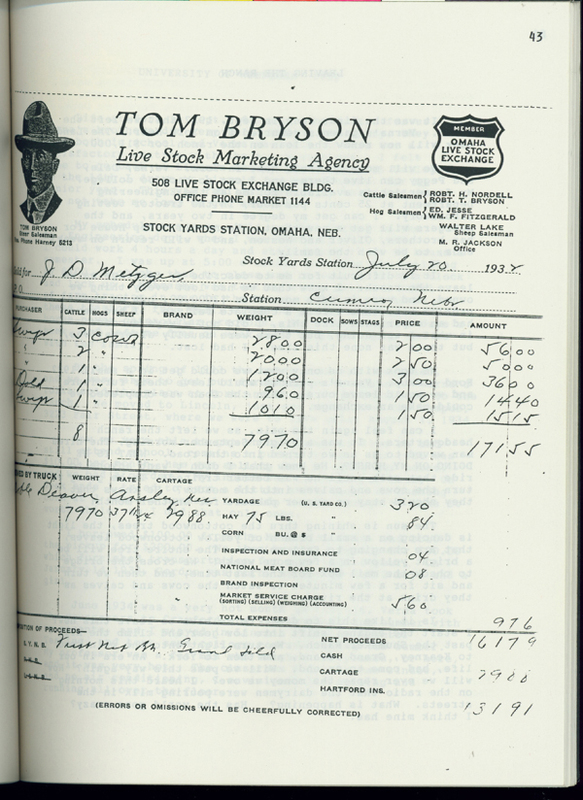 43
TOM BRYSON
Live Stock Marketing Agency
508 LIVE STOCK EXCHANGE BLDG.
OFFICE PHONE MARKET 1144
STOCK YARDS STATION, OMAHA, NEB.
MEMBER
OMAHA
LIVE STOCK
EXCHANGE
Cattle Salesmen ROBT. H. NORDELL
ROBT. T. BRYSON
Hog Salesmen ED. JESSE
WM. F. FITZGERALD
WALTER LAKE
Sheep Salesman
M. R. JACKSON
Office
TOM BRYSON
Salesman
Phone Harney 6213
Stock Yards Station July 20. 1932
for J D Metzger
Station Nebr
PURCHASER CATTLE HOGS SHEEP BRAND WEIGHT DOCK SOWS STAGS PRICE AMOUNT
3 cows 2800 200 5600
2 " 2000 250 5000
1 " 1200 300 3600
1 " 960 150 1440
1 " 1010 150 1515
8 7970 17155
BY TRUCK WEIGHT RATE CARTAGE
Ansley, Neb
7970 37½ 2988
YARDAGE (U. S. YARD CO.) 320
HAY 75 LBS. " 84
CORN BU. @ $ "
INSPECTION AND INSURANCE 04
NATIONAL MEAT BOARD FUND 08
BRAND INSPECTION
MARKET SERVICE CHARGE
(SORTING) (SELLING) (WEIGHING) (ACCOUNTING) 560
TOTAL EXPENSES 976
OF PROCEEDS—
NET PROCEEDS 16179
S. Y. N. B.
CASH
CARTAGE 2988
HARTFORD INS.
13191
(ERRORS OR OMISSIONS WILL BE CHEERFULLY CORRECTED)